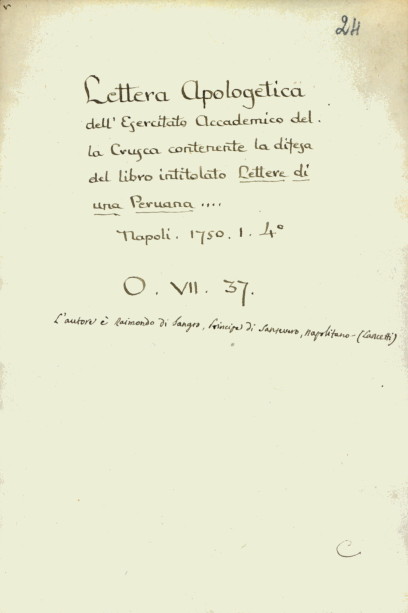 24
Lettera Apologetica
dell' Esercitato Accademico del-
la Crusca contenente la difesa
del libro intitolato Lettere di
una Peruana ....
Napoli. 1750. 1. 4°
O. VII. 37.
L'autore è Raimondo di Sangro, Principe di Sansevero, Napolitano - (Lancetti)
C